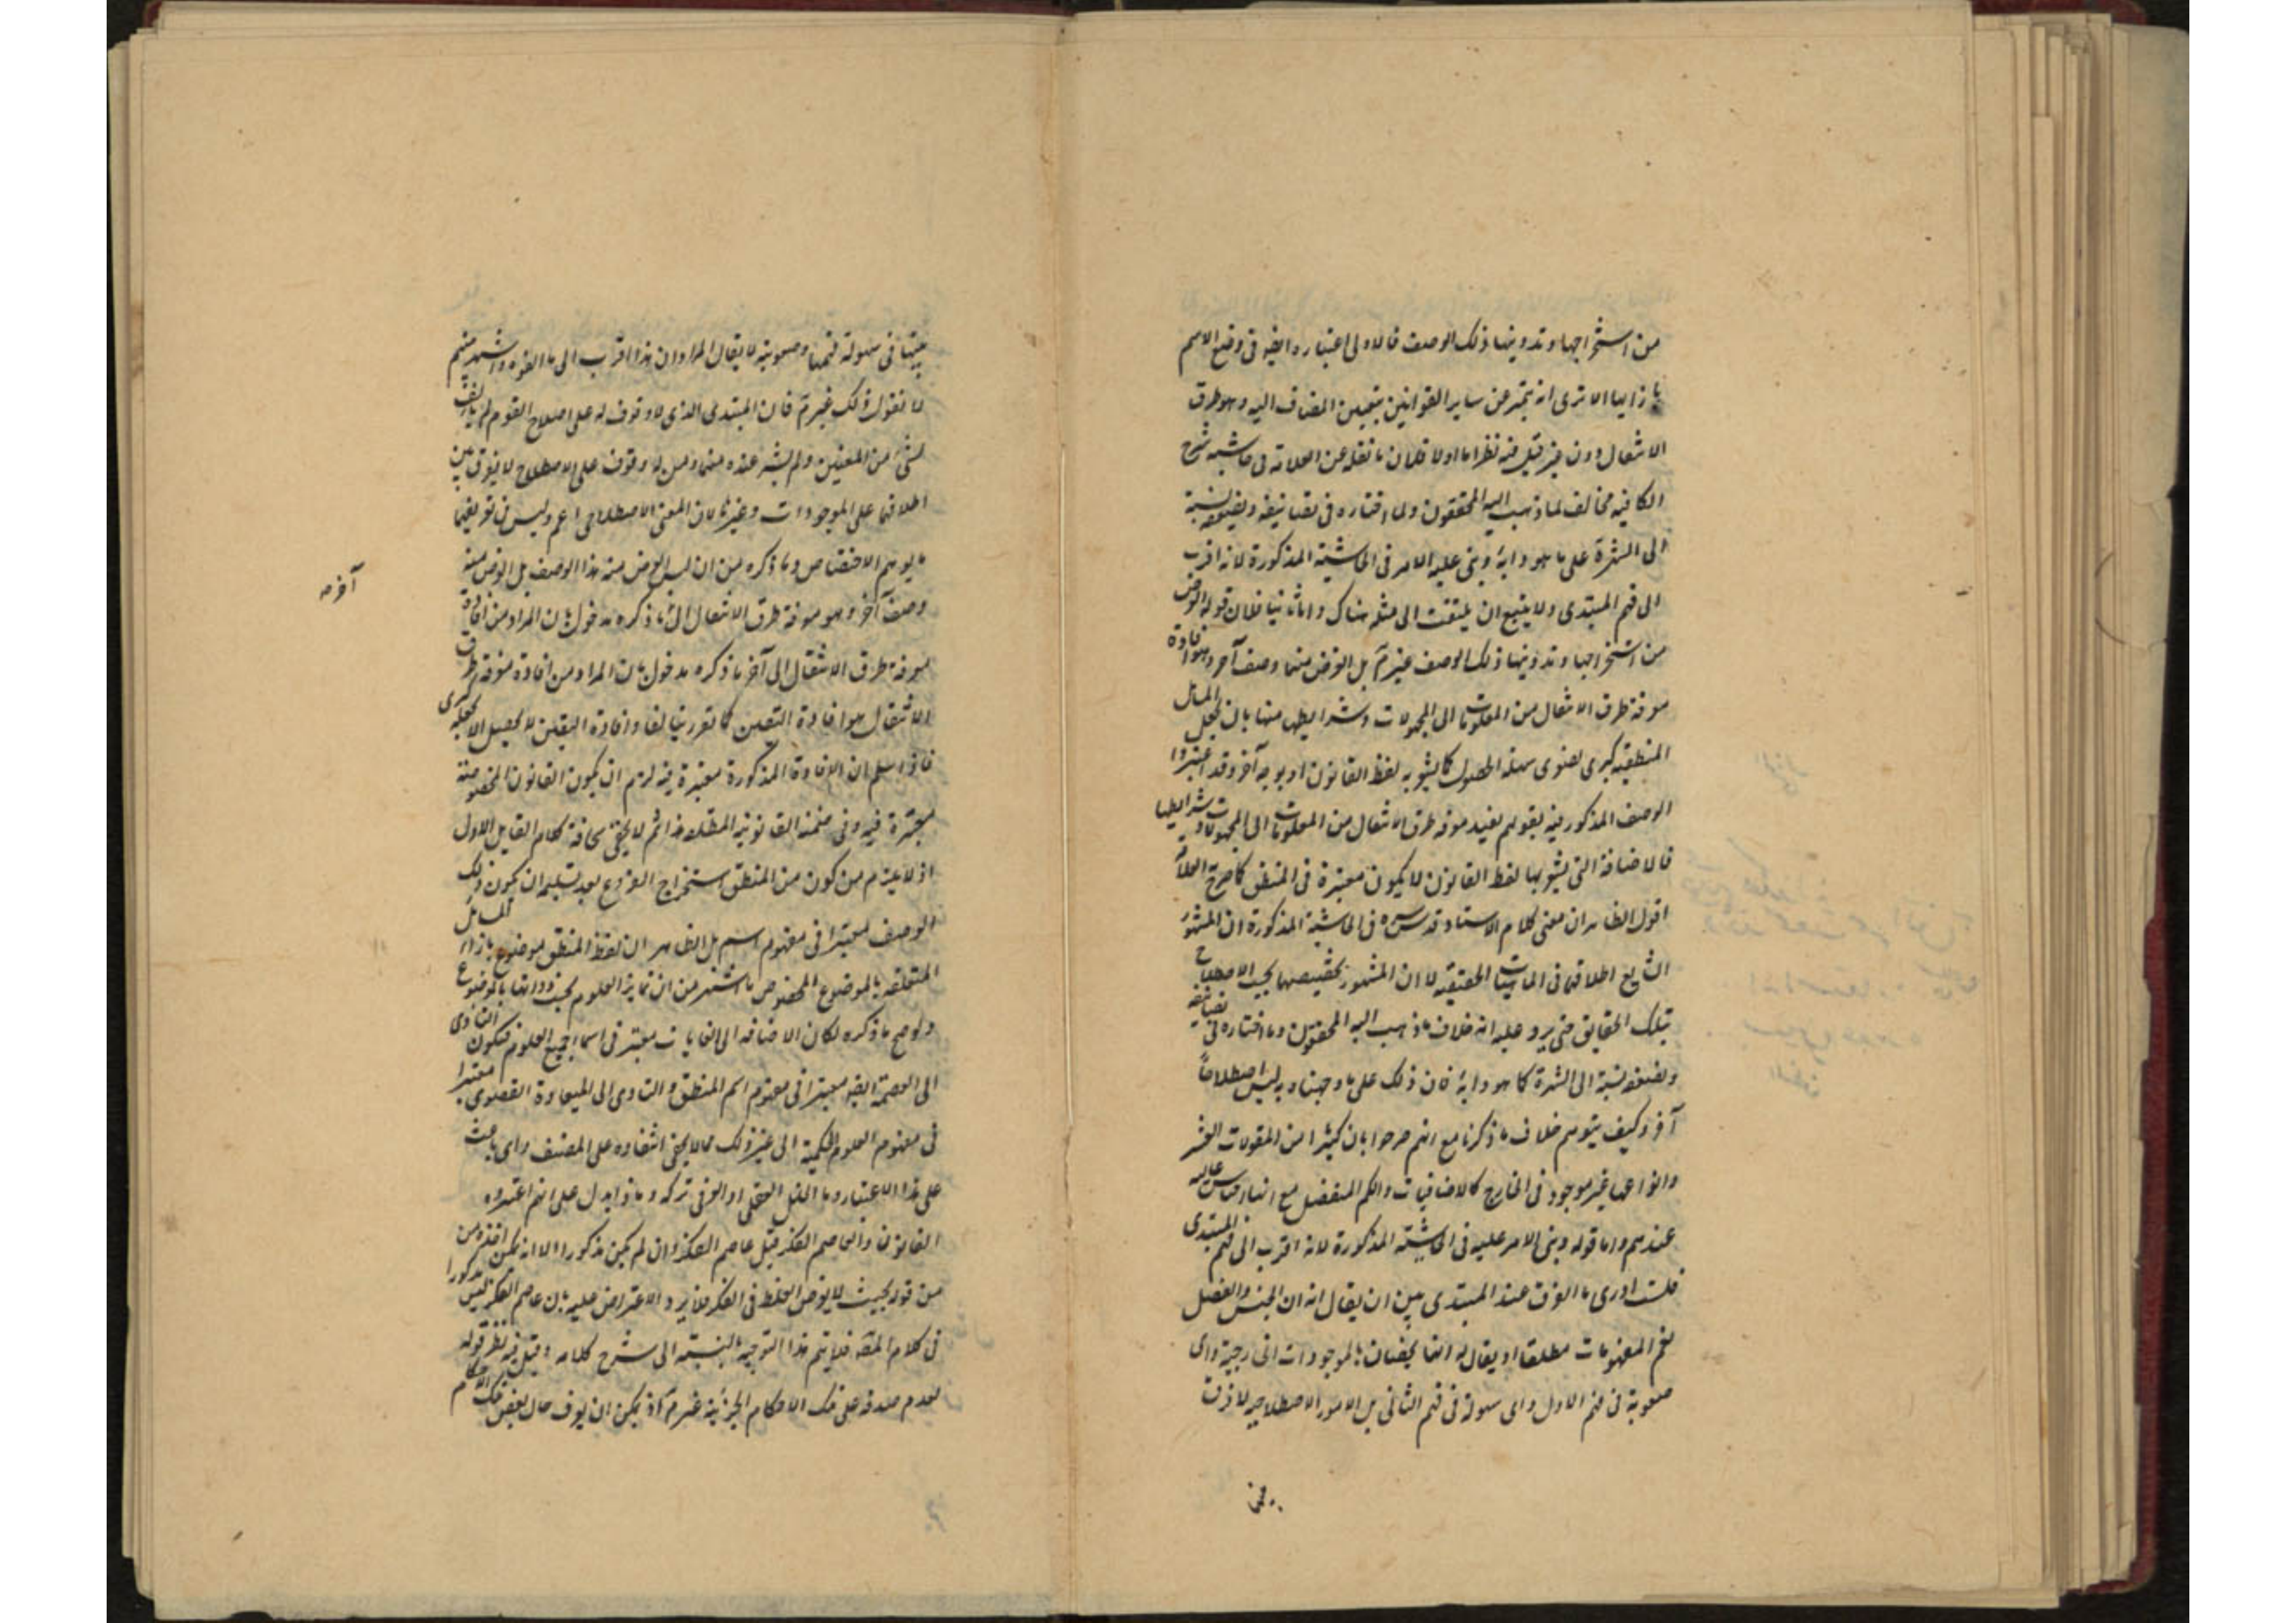 من استخراجها وتدوينها ذلك الوصف فالاولى اعتباره ايضا فى وضع الاسم
بازايها الا ترى انه يتميز عن ساير القوانين بتعيين المضاف اليه وهو طرق
الانتقال دون غيره قيل فيه نظر اما اولا فلان ما نقله عن العلامة فى حاشية شرح
الكافيه مخالف لما ذهب اليه المحققون ولما اختاره فى تصانيفه وبضعفه نسبة
الى الشهرة على ما هو دابه وبنى عليه الامر فى الحاشية المذكورة لانه اقرب
الى فهم المبتدى ولا ينبغ ان يلتفت الى مثله هناك واما ثانيا فلان قوله الغرض
من استخراجها وتدوينها ذلك الوصف غير تم بل الغرض منها وصف آخر وهو افادة
معرفة طرق الانتقال من المعلومات الى المجهولات وشرايطها منها بان يجعل المسائل
المنطقيه كبرى لصغرى سهلة الحصول كما يشعر به لفظ القانون او بوجه آخر وقد اعتبروا
الوصف المذكور فيه بقولهم يفيد معرفة طرق الانتقال من المعلومات الى المجهولات وشرايطها
فالاضافة التى يشعر بها لفظ القانون لا يكون معتبرة فى المنطق كما صرح العلا
اقول الظاهر ان معنى كلام الاستاد قدس سره فى الحاشية المذكورة ان المشهور
الشايع اطلاقها فى الماهيات الحقيقيه لا ان المشهور تخصيصها بحسب الاصطلاح
بتلك الحقايق حتى يرد عليه انه خلاف ما ذهب اليه المحققون وما اختاره فى تصانيفه
وبضعفه نسبة الى الشهرة كما هو دابه فان ذلك على ما وجهناه به ليس اصطلاحاً
آخر وكيف يتوهم خلاف ما ذكرنا مع انهم صرحوا بان كثيرا من المقولات العشر
وانواعها غير موجود فى الخارج كالاضافيات والكم المنفصل مع انها اجناس عاليه
عندهم واما قوله وبنى الامر عليه فى الحاشية المذكورة لانه اقرب الى فهم المبتدى
فلست ادرى ما الفرق عند المبتدى بين ان يقال له ان الجنس والفصل
يعم المفهومات مطلقا او يقال له انها يختصان بالموجودات الخارجية واى
صعوبة فى فهم الاول واى سهولة فى فهم الثانى بل الامور الاصطلاحيه لا فرق
بينها
بينها فى سهولة فهمها وصعوبته لا يقال المراد ان هذا اقرب الى ما الفوه واشتهر بينهم
لا نقول ذلك غير تم فان المبتدى الذى لا وقوف له على اصلاح القوم لم يالف
لشئ من المعنيين ولم يشتهر عنده منهما ومن له وقوف على الاصطلاح لا يفرق بين
اطلاقها على الموجودات وغيرها لان المعنى الاصطلاحى اعم وليس فى تعريفها
ما يوهم الاختصاص وما ذكره من ان ليس الغرض منه هذا الوصف بل الغرض منه
وصف آخر وهو معرفة طرق الانتقال الى ما ذكره مدخول بان المراد من افادة
معرفة طرق الانتقال الى آخر ما ذكره مدخول بان المراد من افادة معرفة طرق
الانتقال هو افادة اليقين كما تقرر سالفا وافادة اليقين لا يحصل الا بجعله كبرى
فاذا سلم ان الافادة المذكورة معتبرة فيه لزم ان يكون القانون المخصوصة
معتبرة فيه وفى ضمنه القانونية المطلقة هذا ثم لا يخفى سخافة كلام القايل الاول
اذ لا يلزم من كون من المنطق استخراج الفروع بعد تسليم ان يكون ذلك
الوصف معتبرا فى مفهوم اسمه بل الظاهر ان لفظ المنطق موضوع بازاء المسائل
المتعلقه بالموضوع المخصوص ما اشتهر من ان تمايز العلوم بحسب ذواتها بالموضوع
ولو صح ما ذكره لكان الاضافه الى الغايات معتبر فى اسماء جميع العلوم فيكون التادى
الى العصمة ايضا معتبرا فى مفهوم اسم المنطق والتادى الى السعادة القصوى معتبرا
فى مفهوم العلوم الحكمية الى غير ذلك مما لا يخفى انتفاؤه على المصنف واى باعث
على هذا الاعتبار وما الخلل العقلى او العرفى تركه وماذا يدل على انهم اعتبروه
القانون واما عاصم الفكر قيل عاصم الفكر وان لم يكن مذكورا الا انه يمكن اخذه من
من قوله بحيث لا يعرض الغلط فى الفكر فلا يرد الاعتراض عليه بان عاصم الفكر ليس مذكورا
فى كلام المص فلا يتم هذا التوجيه بالنسبة الى شرح كلامه قيل فيه نظر قوله
لعدم صدقه على تلك الاحكام الجزئية غير تم اذ يمكن ان يعرف حال بعض تلك الاحكام
آخر مه